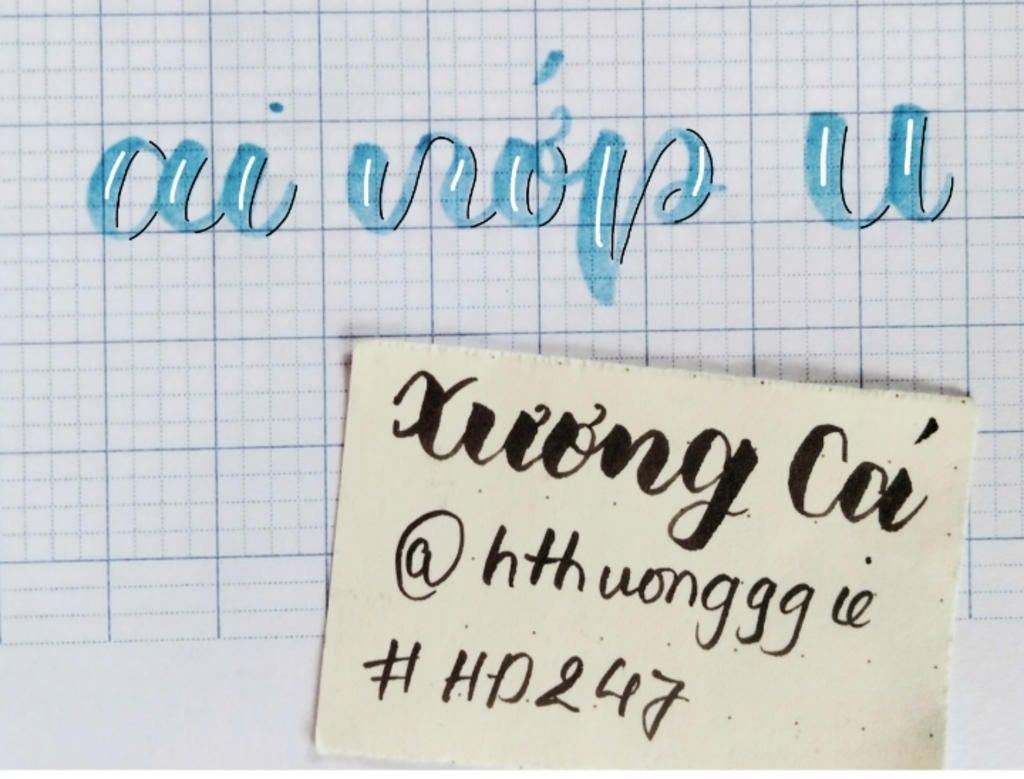 ai vớp u
Xương Cá
@hthuongggie
#HD247